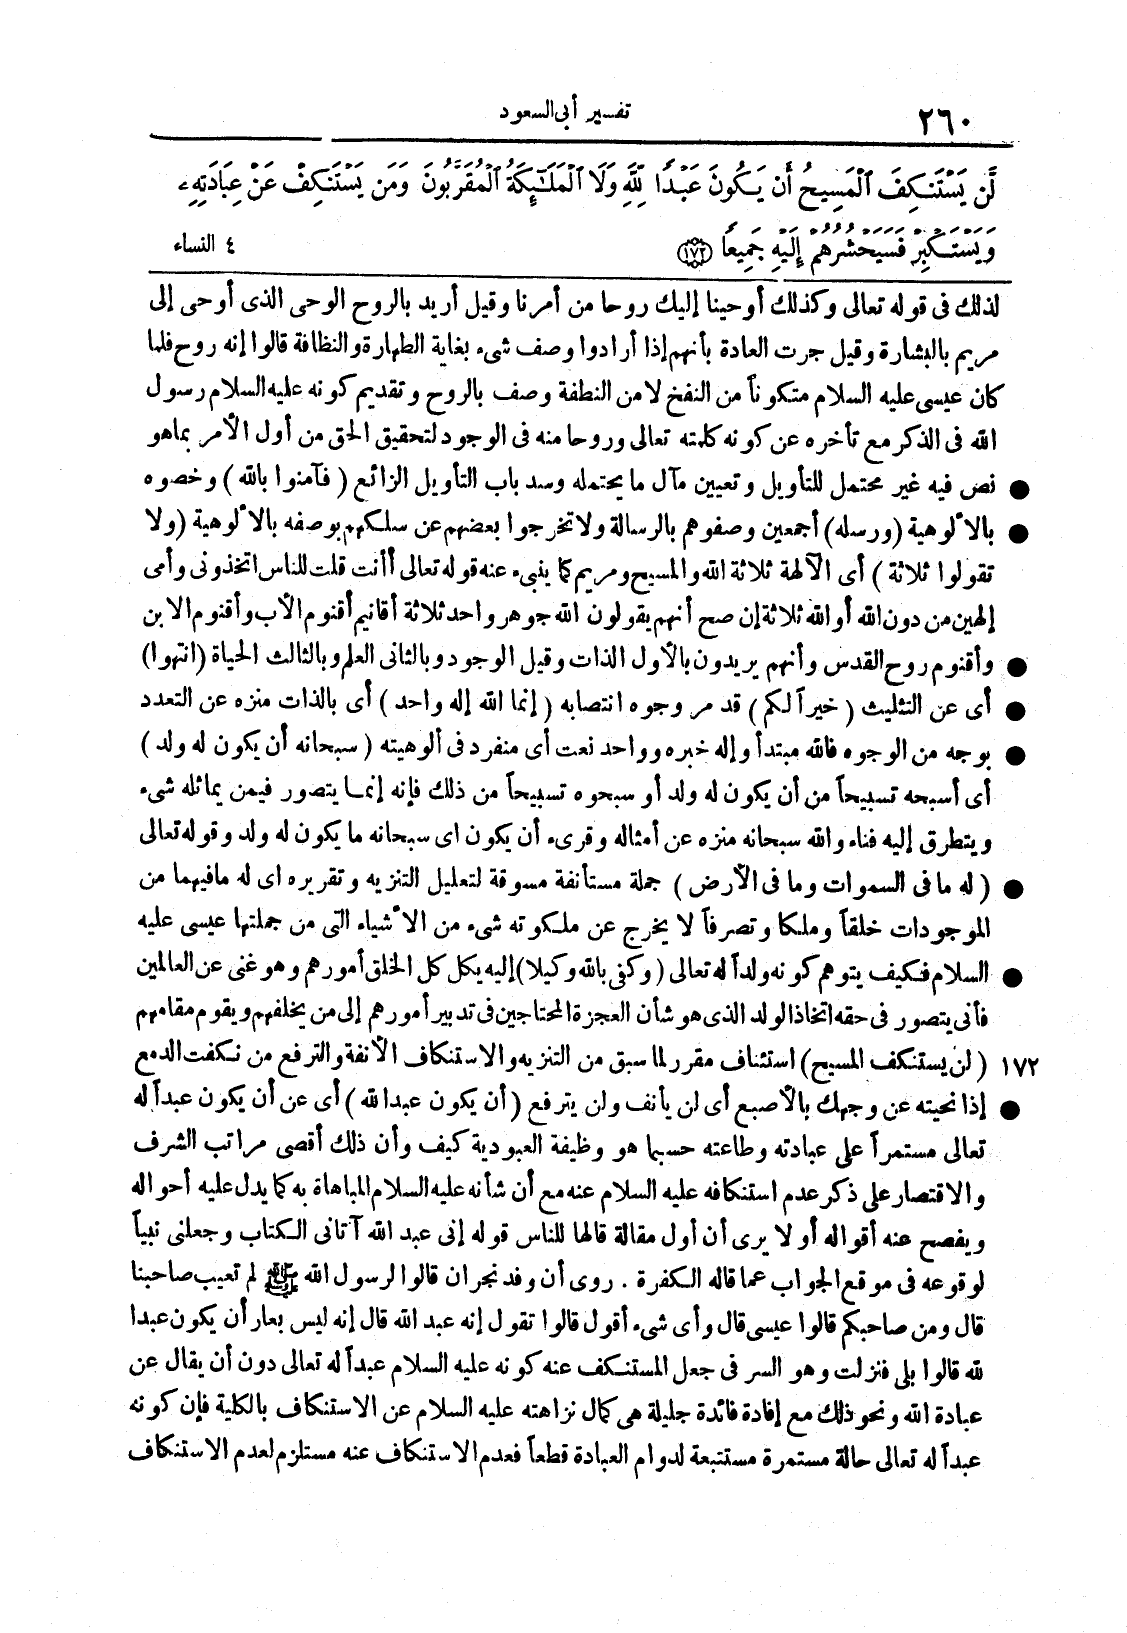 ٢٦٠ تفسير أبى السعود
لَّن يَسْتَنكِفَ ٱلْمَسِيحُ أَن يَكُونَ عَبْدًا لِّلَّهِ وَلَا ٱلْمَلَٰٓئِكَةُ ٱلْمُقَرَّبُونَ وَمَن يَسْتَنكِفْ عَنْ عِبَادَتِهِۦ
وَيَسْتَكْبِرْ فَسَيَحْشُرُهُمْ إِلَيْهِ جَمِيعًا ١٧٢ ٤ النساء
لذلك فى قوله تعالى وكذلك أوحينا إليك روحا من أمرنا وقيل أريد بالروح الوحى الذى أوحى إلى
مريم بالبشارة وقيل جرت العادة بأنهم إذا أرادوا وصف شىء بغاية الطهارة والنظافة قالوا إنه روح فلما
كان عيسى عليه السلام متكوناً من النفخ لا من النطفة وصف بالروح وتقديم كونه عليه السلام رسول
الله فى الذكر مع تأخره عن كونه كلمته تعالى وروحا منه فى الوجود لتحقيق الحق من أول الأمر بما هو
● نص فيه غير محتمل للتأويل وتعيين مآل ما يحتمله وسد باب التأويل الزائغ ( فآمنوا بالله ) وخصوه
● بالألوهية (ورسله) أجمعين وصفوهم بالرسالة ولا تخرجوا بعضهم عن سلكهم بوصفه بالألوهية (ولا
تقولوا ثلاثة ) أى الآلهة ثلاثة الله والمسيح ومريم كما ينبىء عنه قوله تعالى أأنت قلت للناس اتخذونى وأمى
إلهين من دون الله أو الله ثلاثة إن صح أنهم يقولون الله جوهر واحد ثلاثة أقانيم أقنوم الأب وأقنوم الابن
● وأقنوم روح القدس وأنهم يريدون بالأول الذات وقيل الوجود وبالثانى العلم وبالثالث الحياة (انتهوا)
● أى عن التثليث ( خيراً لكم ) قد مر وجوه انتصابه ( إنما الله إله واحد ) أى بالذات منزه عن التعدد
● بوجه من الوجوه فالله مبتدأ وإله خبره وواحد نعت أى منفرد فى ألوهيته ( سبحانه أن يكون له ولد )
أى أسبحه تسبيحاً من أن يكون له ولد أو سبحوه تسبيحاً من ذلك فإنه إنما يتصور فيمن يماثله شىء
ويتطرق إليه فناء والله سبحانه منزه عن أمثاله وقرىء أن يكون اى سبحانه ما يكون له ولد وقوله تعالى
● ( له ما فى السموات وما فى الأرض ) جملة مستأنفة مسوقة لتعليل التنزيه وتقريره اى له مافيهما من
الموجودات خلقاً وملكا وتصرفاً لا يخرج عن ملكوته شىء من الأشياء التى من جملتها عيسى عليه
● السلام فكيف يتوهم كونه ولداً له تعالى ( وكفى بالله وكيلا) إليه يكل كل الخلق أمورهم وهو غنى عن العالمين
فأنى يتصور فى حقه اتخاذ الولد الذى هو شأن العجزة المحتاجين فى تدبير أمورهم إلى من يخلفهم ويقوم مقامهم
١٧٢ ( لن يستنكف المسيح) استئناف مقرر لما سبق من التنزيه والاستنكاف الأنفة والترفع من نكفت الدمع
● إذا نحيته عن وجهك بالأصبع أى لن يأنف ولن يترفع ( أن يكون عبدا لله ) أى عن أن يكون عبداً له
تعالى مستمراً على عبادته وطاعته حسبما هو وظيفة العبودية كيف وأن ذلك أقصى مراتب الشرف
والاقتصار على ذكر عدم استنكافه عليه السلام عنه مع أن شأنه عليه السلام المباهاة به كما يدل عليه أحواله
ويفصح عنه أقواله أو لا يرى أن أول مقالة قالها للناس قوله إنى عبد الله آتانى الكتاب وجعلنى نبياً
لوقوعه فى موقع الجواب عما قاله الكفرة . روى أن وفد نجران قالوا لرسول الله ﷺ لم تعيب صاحبنا
قال ومن صاحبكم قالوا عيسى قال وأى شىء أقول قالوا تقول إنه عبد الله قال إنه ليس بعار أن يكون عبدا
لله قالوا بلى فنزلت وهو السر فى جعل المستنكف عنه كونه عليه السلام عبداً له تعالى دون أن يقال عن
عبادة الله ونحو ذلك مع إفادة فائدة جليلة هى كمال نزاهته عليه السلام عن الاستنكاف بالكلية فإن كونه
عبداً له تعالى حالة مستمرة مستتبعة لدوام العبادة قطعاً فعدم الاستنكاف عنه مستلزم لعدم الاستنكاف